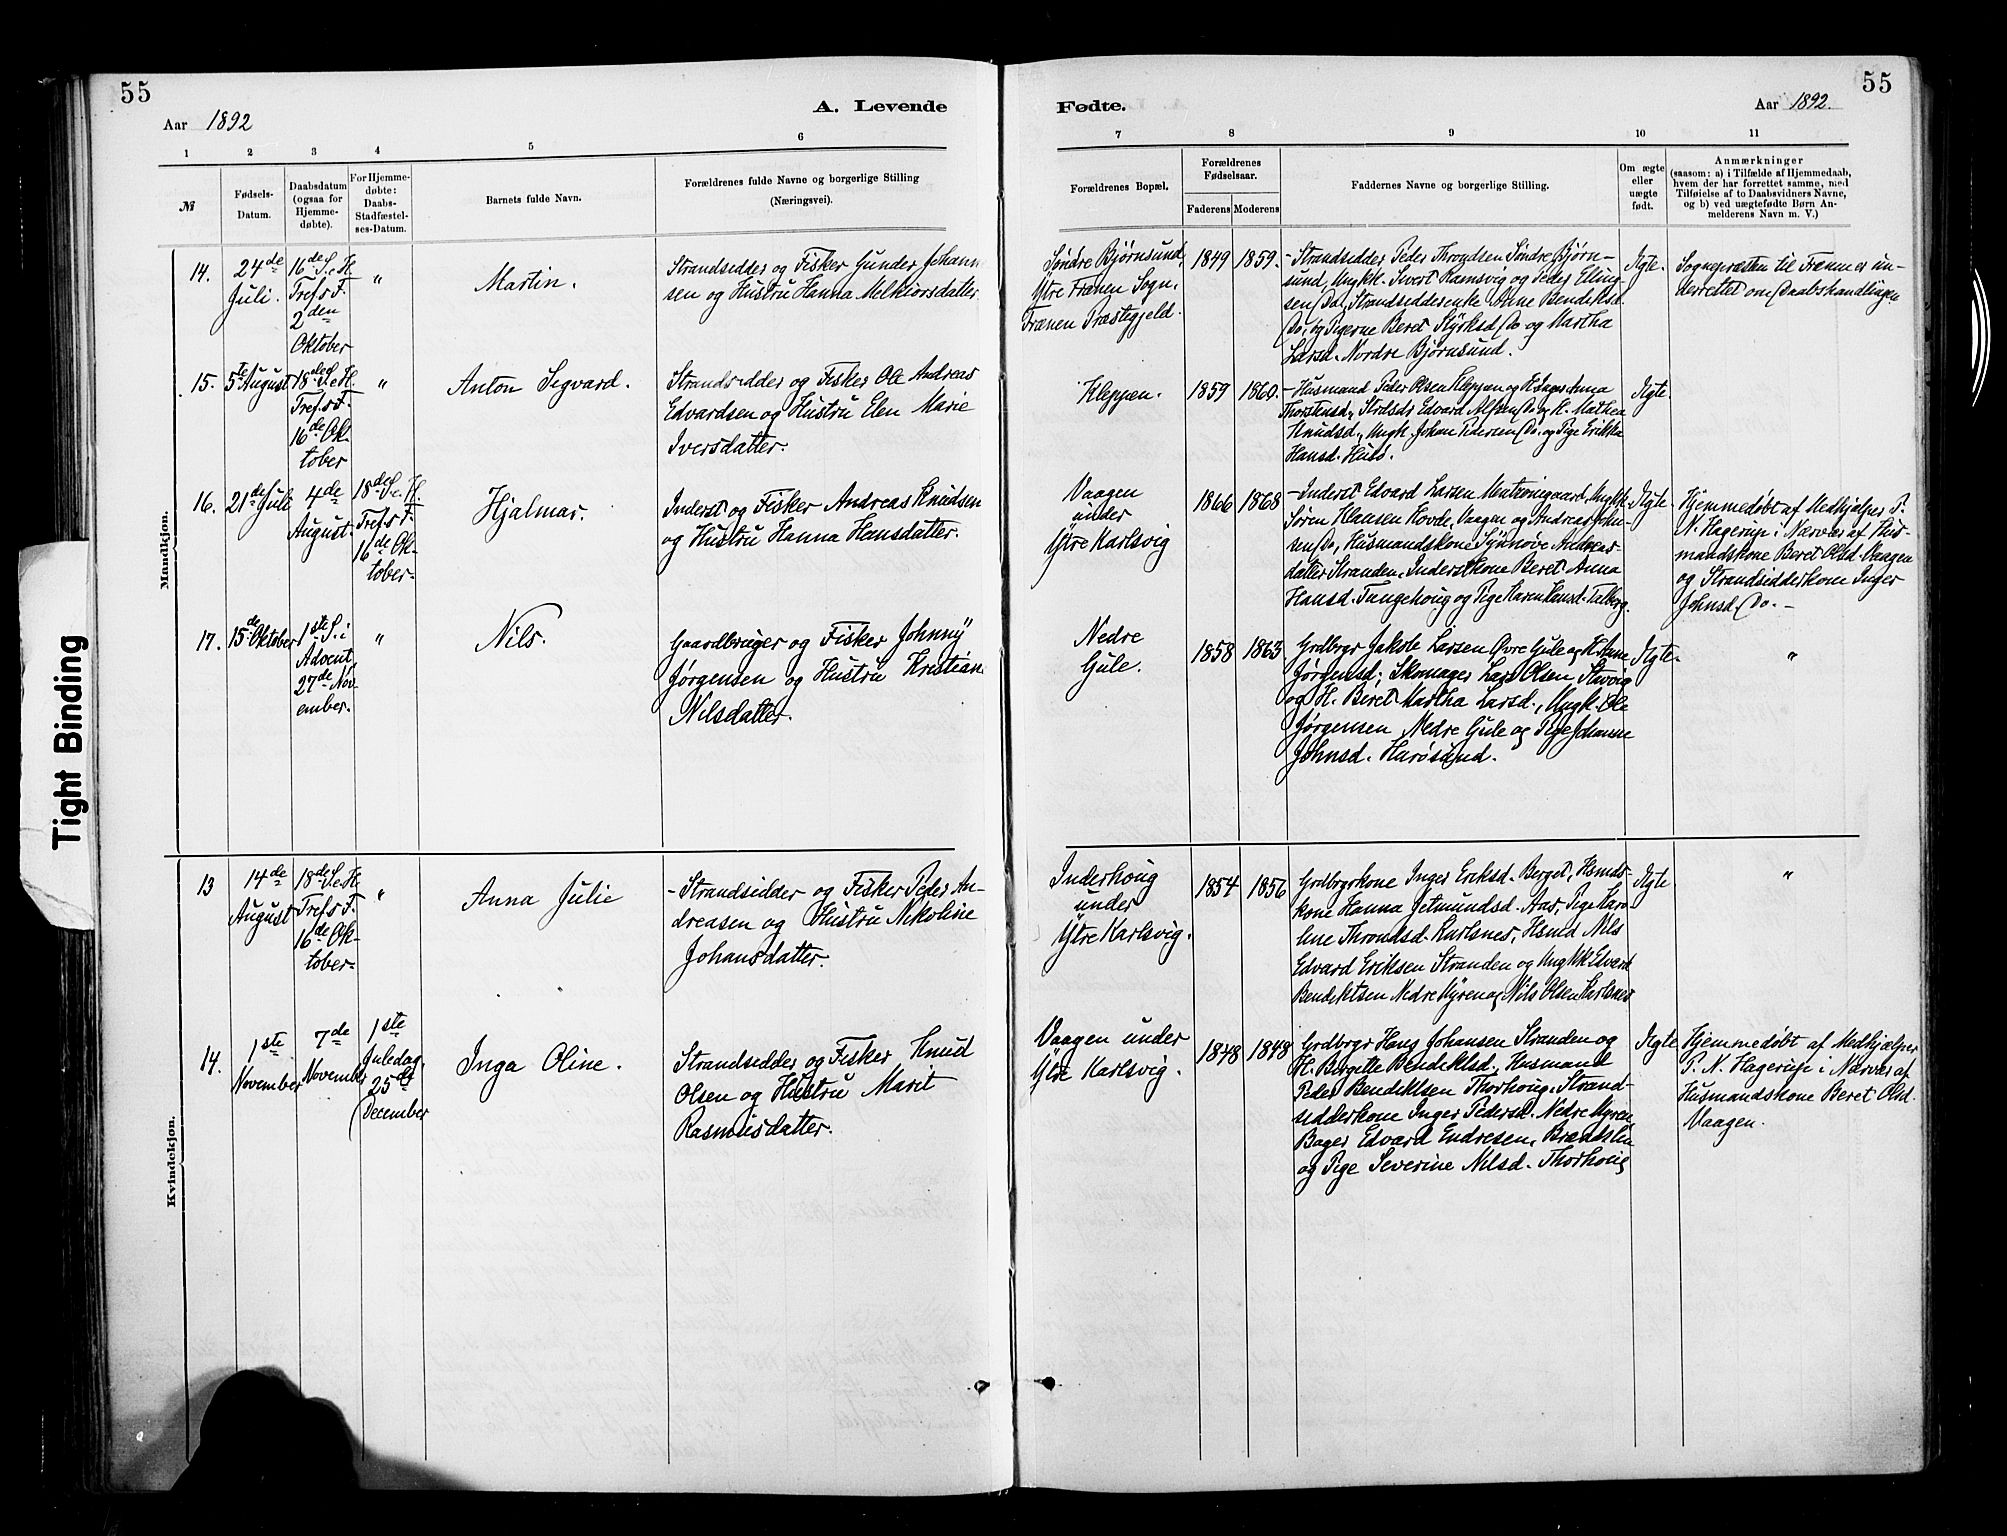 55
A. Levende
Aar 1892
1 2 3 4 5 6
№
Fødsels-
Datum.
Daabsdatum
(ogsaa for
Hjemme-
døbte).
For Hjemme-
døbte:
Daabs-
Stadfæstel-
ses-Datum.
Barnets fulde Navn.
Forældrenes fulde Navne og borgerlige Stilling
(Næringsvei).
Mandkjøn.
14.
24de
Juli.
16de S. e. H.
Tref. s F.
2den
Oktober
"
Martin.
Strandsidder og Fisker Gunder Johann
sen og Hustru Hanna Melkiorsdatter.
15.
5te August
18de S. e. H.
Tref. s F.
16de Ok-
tober
"
Anton Segvard.
Strandsidder og Fisker Ole Andreas
Edvardsen og Hustru Elen Marie
Iversdatter.
16.
21de Juli
4de
August.
18de S. e. H.
Tref. s F.
16de Ok-
tober
Hjalmar.
Inderst og Fisker Andreas Knudsen
og Hustru Hanna Hansdatter.
17.
15de Oktober
1ste S. i
Advent,
27de Nov-
ember.
"
Nils.
Gaardbruger og Fisker Johnny
Jørgensen og Hustru Kristian
Nilsdatter.
Kvindekjøn.
13
14de
August
18de S. e. H.
Tref. s F.
16de Ok-
tober.
"
Anna Julie
- Strandsidder og Fisker Peder An-
dreasen og Hustru Nikoline
Johansdatter.
14.
1ste
November
7de
November
1ste
Juledag,
25de
December
Inga Oline.
Strandsidder og Fisker Knud
Olsen og Hustru Marit
Rasmusdatter.
Tight Binding
55
Fødte.
Aar 1892.
7 8 9 10 11
Forældrenes Bopæl.
Forældrenes
Fødselsaar.
Faderens Moderens
Faddernes Navne og borgerlige Stilling.
Om ægte
eller
uægte
født.
Anmærkninger
(saasom: a) i Tilfælde af Hjemmedaab,
hvem der har forrettet samme, med
Tilføielse af to Daabsvidners Navne,
og b) ved uægtefødte Børn An-
melderens Navn m. V.)
Søndre Bjørnsund,
Ytre Frænen Sogn,
Frænen Præstegjeld.
1849
1859.
- Strandsidder Peder Throndsen Søndre Bjørn-
sund, Ungk. Sivert Ramsvig og Peder Elling-
sen Do, Strandsidderenke Anne Bendiksd.
Do, og Pigerne Beret Styrksd. Do og Martha
Larsd. Nordre Bjørnsund.
Ægte.
Sognepræsten til Frænen er un-
derrettet om Daabshandlingen
Kleppen.
1859
1860.
- Husmand Peder Olsen Kleppen og Anna
Edvard Do og K. Mathea
Knudsd., Ungk. Johan Pedersen Do. og Pige Erikka
Hansd. Husø.
Ægte.
Vaagen
under
Ytre Karlsvig
1866
1868
- Inderst Edvard Larsen Ungk.
Søren Klausen Hovde, Vaagen og Andreas John-
sen Do, Husmandskone Synnøve Andreas-
datter Stranden, Inderstkone Beret Anna
Hansd. Tungehoug og Pige Karen Hansd. Talberg.
Ægte.
Hjemmedøbt af Medhjælper P.
N. Hagerup i Nærvær af Hus-
mandskone Beret Olsd. Vaagen
og Strandsidderkone Inger
Johnsd. Do. -
Nedre
Gule.
1858
1863
Grdbrgr Jakob Larsen Øvre Gule og
Jørgensd; Skomager Lars Olsen Stavig
og H. Beret Martha Larsd., Ungk. Ole
Jørgensen Nedre Gule og Pige Johanne
Johnsd. Harøsund.
Ægte.
"
Inderhoug
under
Ytre Karlsvig.
1854
1856
Grdbrgrkone Inger Eriksd. Berget, Hsmds-
kone Hanna Jetmundsd. Aas, Pige Karo-
line Throndsd. Karlsnes, Hsmd Nils
Edvard Eriksen Stranden og Ungkk Edvard
Bendiktsen Nedre Myren og Nils Olsen Karlsnes
Ægte
"
Vaagen under
Ytre Karlsvig.
1848
1848
Grdbrgr Hans Johansen Stranden og
H. Bergitte Bendiktsd. Husmand
Peder Bendiktsen Thorhoug, Strand-
sidderkone Inger Pedersd. Nedre Myren,
Bager Edvard Endresen,
og Pige Severine Nilsd. Thorhoug
Ægte
Hjemmedøbt af Medhjælper
P. N. Hagerup i Nærvær af
Husmandskone Beret Olsd.
Vaagen.